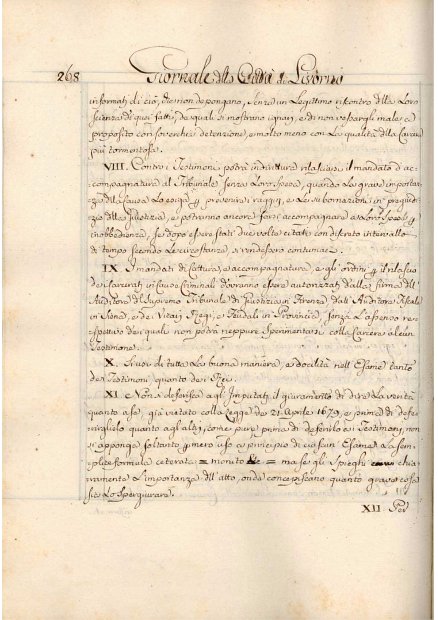 268 Giornale della Città di Livorno
informati di ciò, che non depongano, senza un Legittimo riscontro della Loro
scienza di quei fatti, de quali si mostrano ignari, e di non usargli male a
proposito con soverchia detenzione, e molto meno con La qualità della Carcere
più tormentosa.
VIII. Contro i Testimoni potrà indirittura rilasciarsi il mandato d'ac-
compagnatura al Tribunale senza Loro spese, quando La grave importan-
za della Causa Lo esiga per prevenire i raggiri, e La subornazione in pregiudi-
zio della Giustizia, e potranno ancora farsi accompagnare a Loro spese per
inobbedienza, se dopo essere stati due volte citati con discreto intervallo
di tempo secondo Le circostanze, si rendessero contumaci.
IX. I mandati di Cattura, e accompagnatura, e gli ordini per il rilascio
dei Carcerati in cause Criminali dovranno essere autorizzati dalla firma dell'
Auditore del Supremo Tribunale di Giustizia in Firenze, dall'Auditore Fiscale
in Siena, e dei Vicarj Regj, e Feudali in Provincia, senza L'assenso re-
spettivo dei quali non potrà neppure sperimentarsi colla Carcere alcun
Testimone.
X. Si usi di tutta La buona maniera, e docilità nell'Esame tanto
dei Testimoni quanto dei Rei.
XI. e Non si deferisca agl'Imputati il giuramento di dire La verità
quanto a se, già vietato colla Legge de 21 Aprile 1679, e prima di defe-
rirglielo quanto agl'altri, come pure prima di deferirlo ai Testimoni, non
si apponga soltanto per mero uso a principio di ciascun Esame La sem-
plice formula ceterata = monito &c = ma se gli spieghi chia-
ramente L'importanza dell'atto, onde concepiscano quanto grave cosa
sia Lo spergiurare.
XII. Per